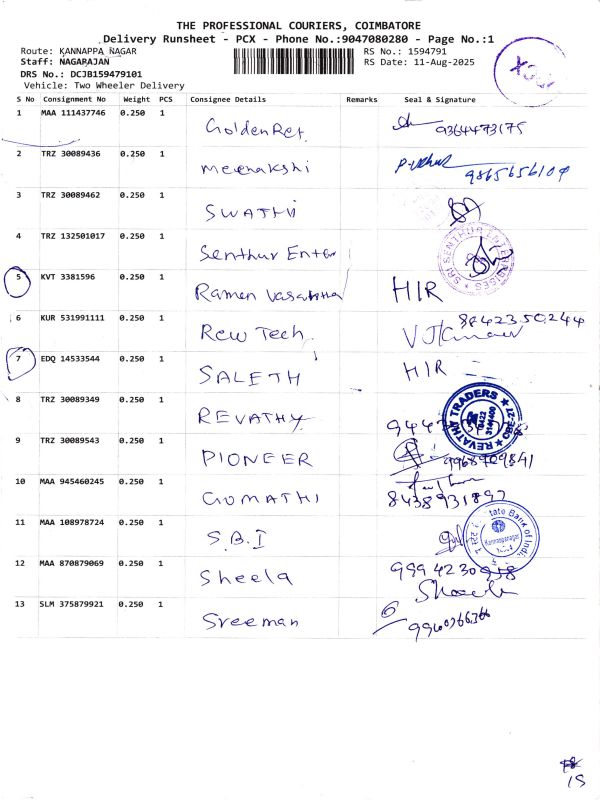 THE PROFESSIONAL COURIERS, COIMBATORE
Delivery Runsheet - PCX - Phone No.:9047080280 - Page No.:1
Route: KANNAPPA NAGAR RS No.: 1594791
Staff: NAGARAJAN RS Date: 11-Aug-2025
DRS No.: DCJB159479101
Vehicle: Two Wheeler Delivery
S No Consignment No Weight PCS Consignee Details Remarks Seal & Signature
1 MAA 111437746 0.250 1 Golden Ret. 9364473175
2 TRZ 30089436 0.250 1 meenakshi 9865656109
3 TRZ 30089462 0.250 1 SWATHI
4 TRZ 132501017 0.250 1 Senthur Enter SRI SENTHUR ENTERPRISES
5 KVT 3381596 0.250 1 Ramen Vasantha HIR
6 KUR 531991111 0.250 1 Rew Tech. 9842350244
7 EDQ 14533544 0.250 1 SALETH HIR
8 TRZ 30089349 0.250 1 REVATHY REVATHY TRADERS
9 TRZ 30089543 0.250 1 PIONEER 9968909841
10 MAA 945460245 0.250 1 GOMATHI 8438931892
11 MAA 108978724 0.250 1 S.B.I State Bank of India
12 MAA 870879069 0.250 1 Sheela 9994230958
Sheela
13 SLM 375879921 0.250 1 Sreeman
15